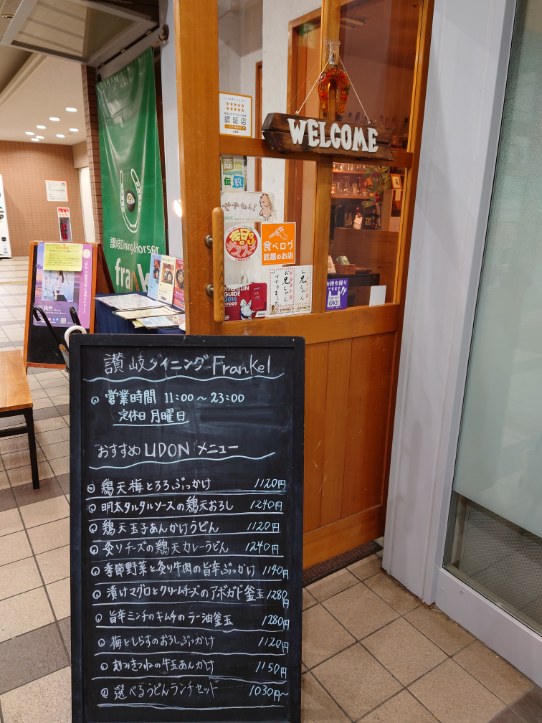 WELCOME
認証店
食べログ
話題のお店
讃岐ダイニングFrankel
営業時間 11:00～23:00
定休日 月曜日
おすすめUDONメニュー
鶏天梅とろろぶっかけ 1120円
明太タルタルソースの鶏天おろし 1240円
鶏天玉子あんかけうどん 1120円
炙りチーズの鶏天カレーうどん 1240円
季節野菜と炙り牛肉の旨辛ぶっかけ 1190円
漬けマグロとクリームチーズのアボガド釜玉 1280円
旨辛ミンチのキムチのラー油釜玉 1280円
梅としらすのおろしぶっかけ 1120円
の牛玉あんかけ 1150円
選べるうどんランチセット 1030円～